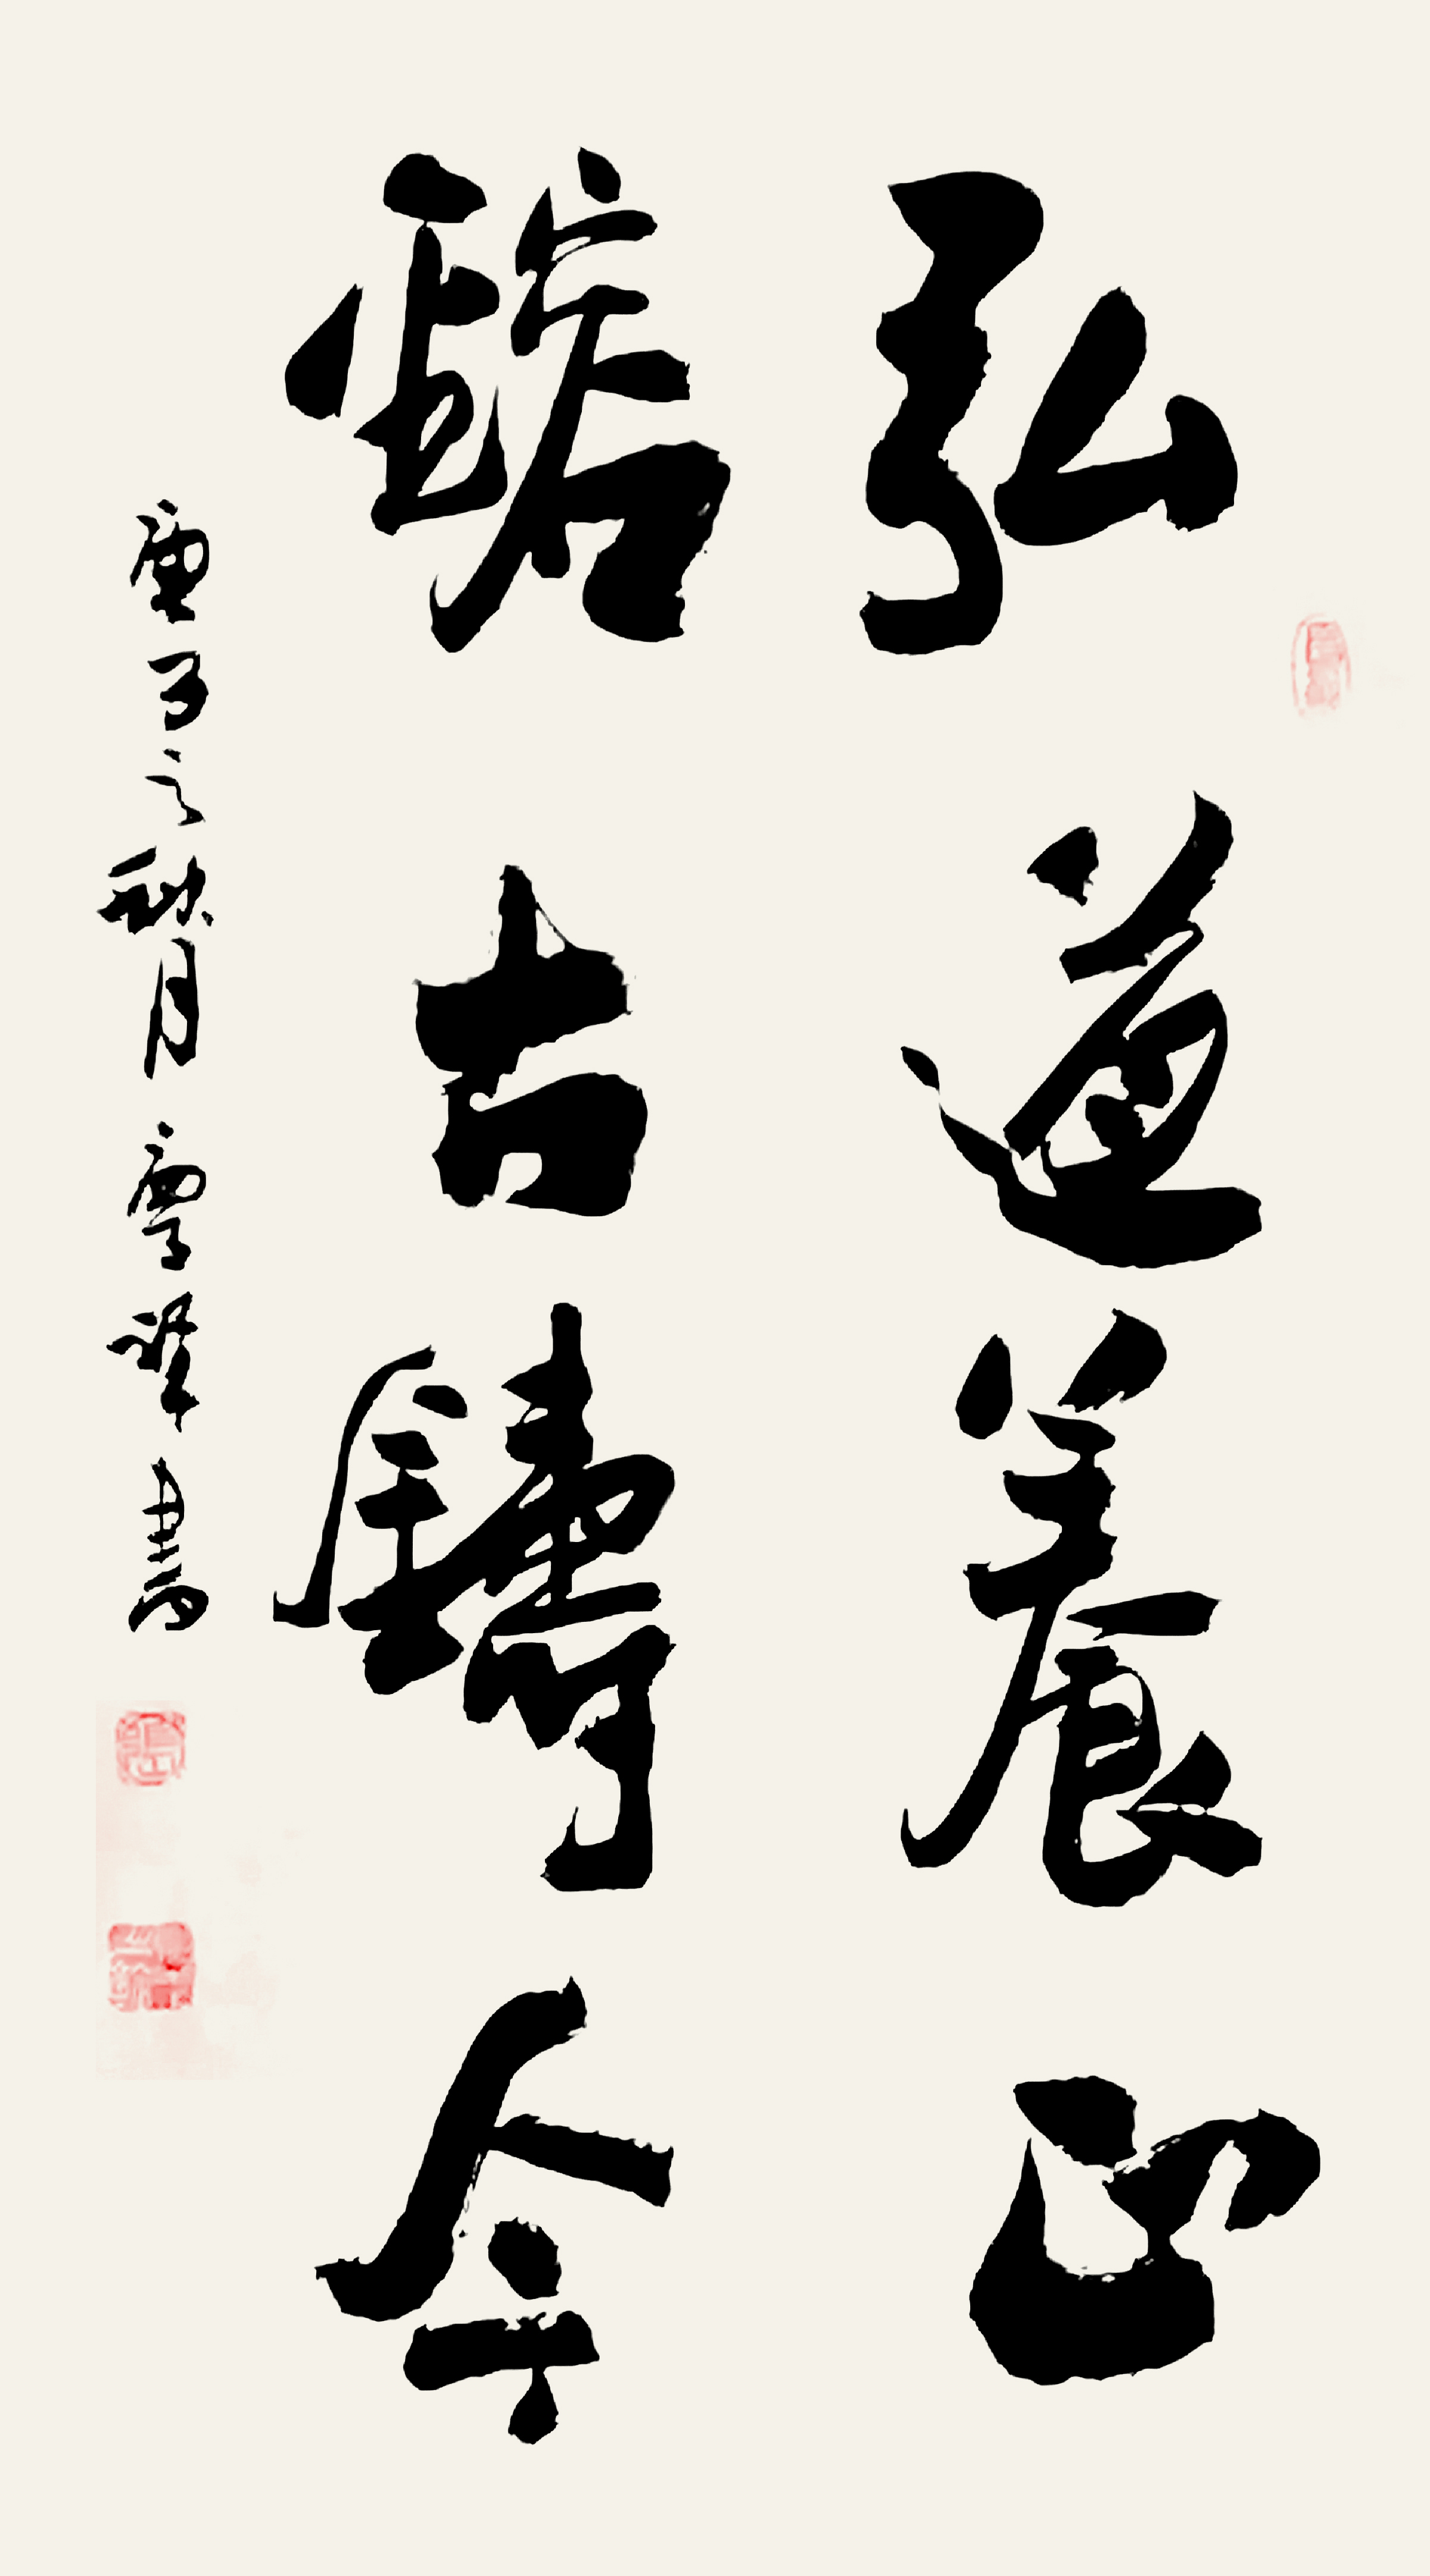 弘道養正
融古鑄今
庚子之秋月 雲峰書